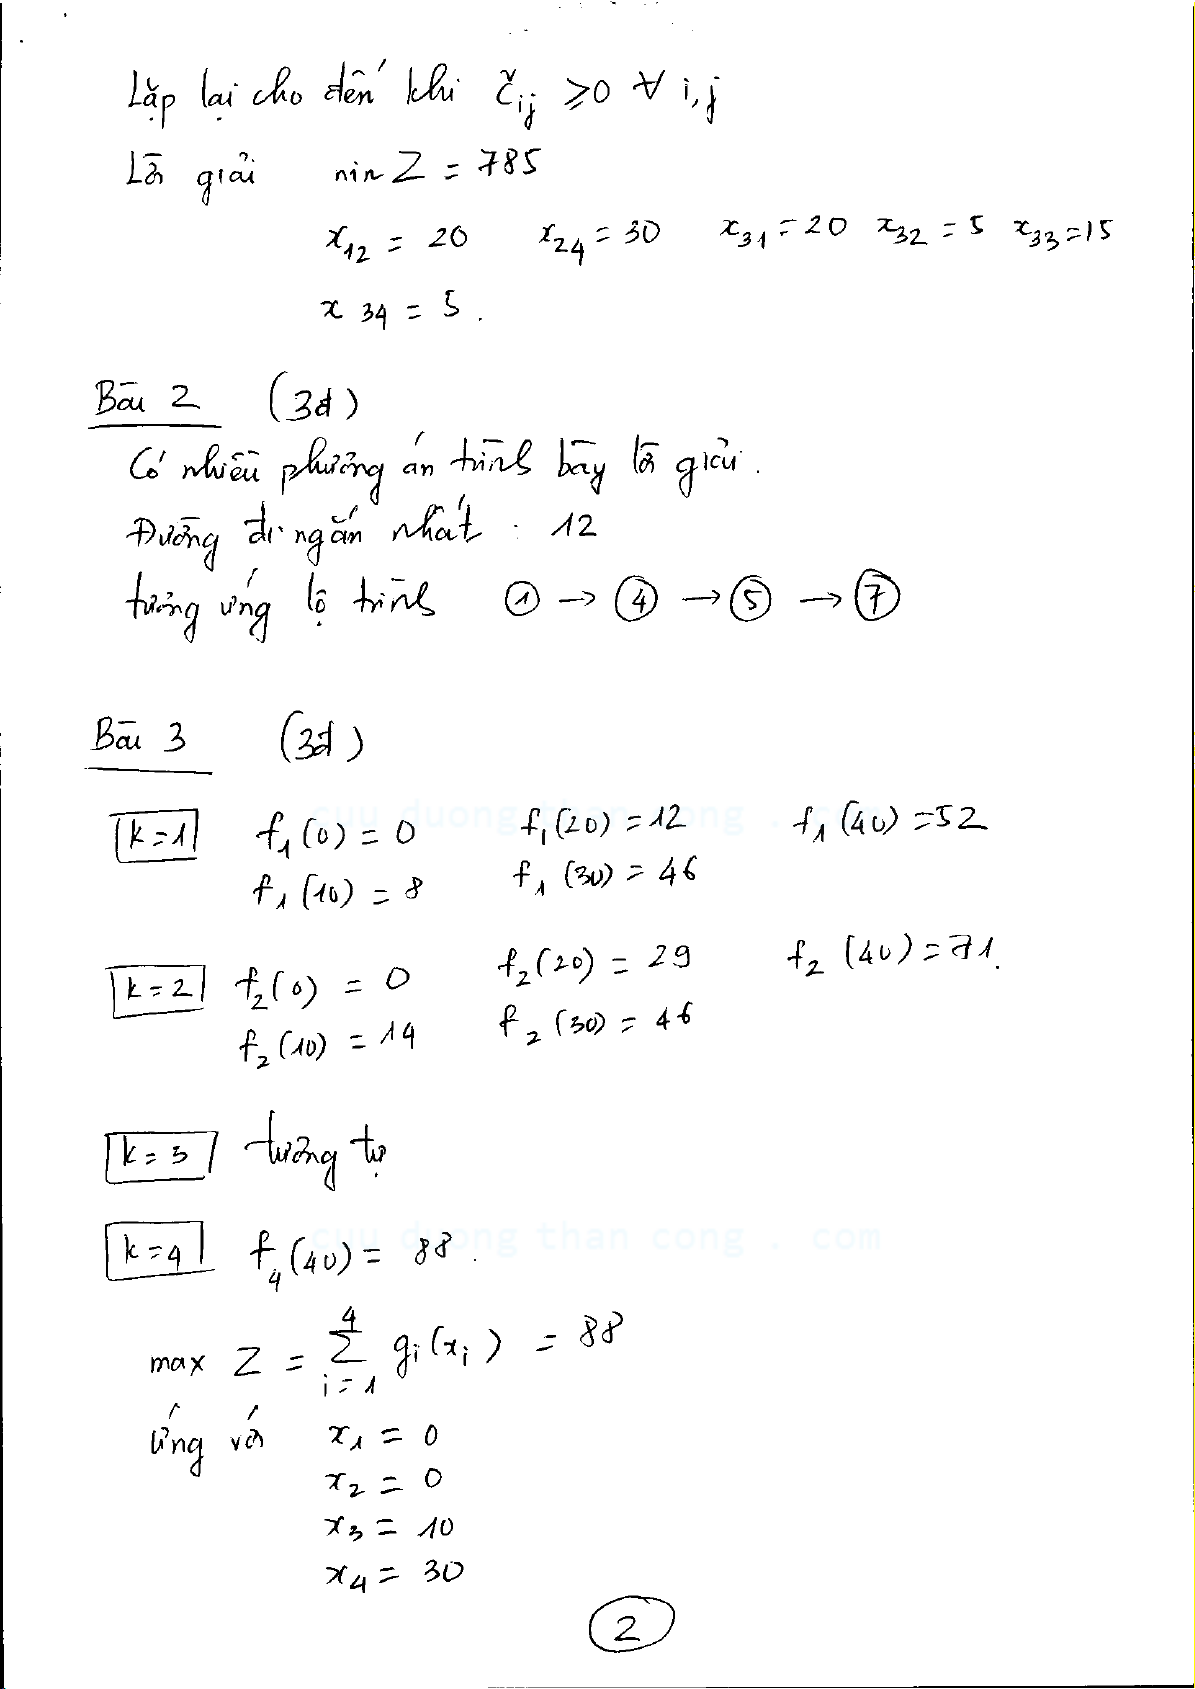 Lặp lại cho đến khi č_ij ≥ 0 ∀ i,j
Lời giải min Z = 785
x_12 = 20 x_24 = 30 x_31 = 20 x_32 = 5 x_33 = 15
x_34 = 5.
Bài 2 (3đ)
Có nhiều phương án trình bày lời giải.
Đường đi ngắn nhất : 12
tương ứng lộ trình ① → ④ → ⑤ → ⑦
Bài 3 (3đ)
cuu duong than cong . com
k=1 f_1(0) = 0 f_1(20) = 12 f_1(40) = 52
f_1(10) = 8 f_1(30) = 46
k=2 f_2(0) = 0 f_2(20) = 29 f_2(40) = 71.
f_2(10) = 14 f_2(30) = 46
k=3 tương tự
cuu duong than cong . com
k=4 f_4(40) = 88.
max Z = ∑_{i=1}^{4} g_i(x_i) = 88
ứng với x_1 = 0
x_2 = 0
x_3 = 10
x_4 = 30
2